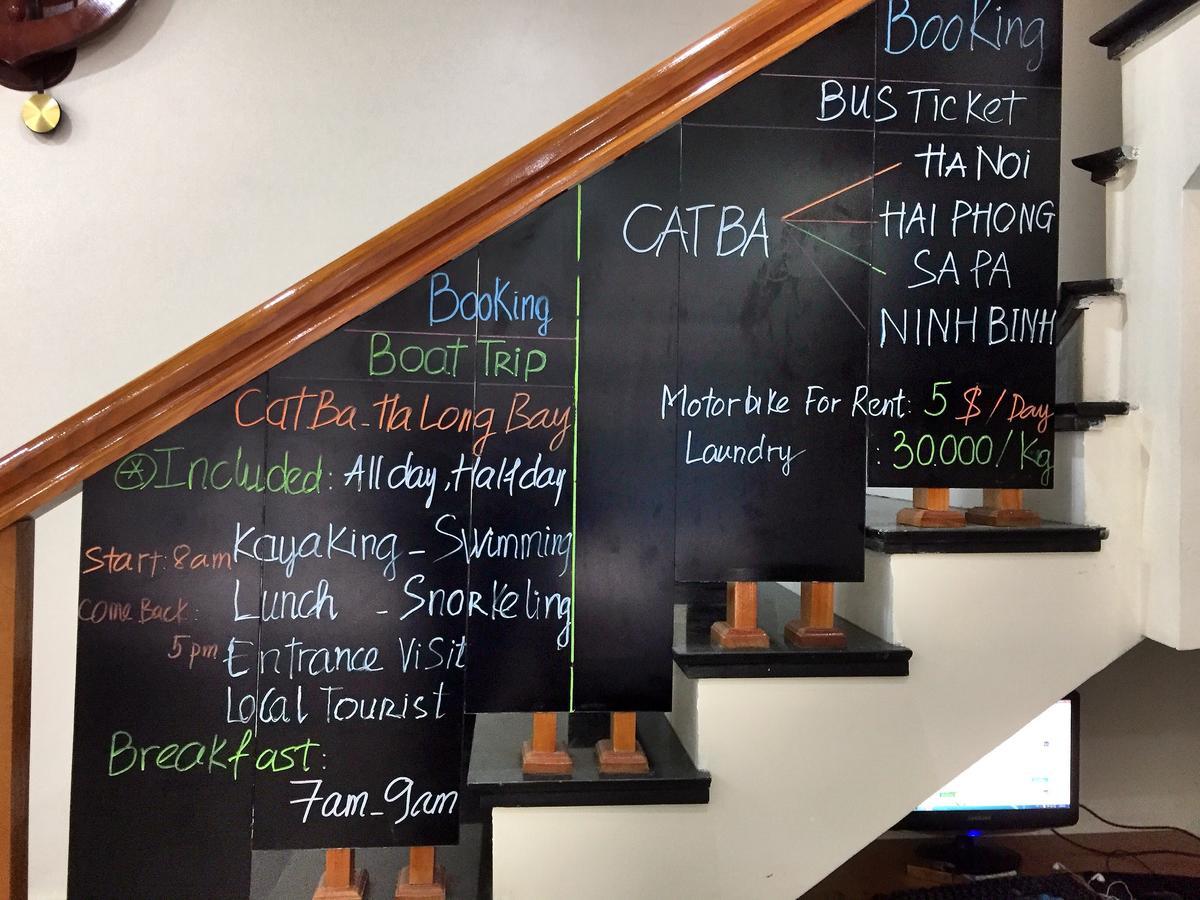 Booking
Boat Trip
CatBa - Ha Long Bay
Included: All day, Half day
Kayaking - Swimming
Start: 8am
Lunch - Snorkeling
Come Back:
5pm
Entrance Visit
Local Tourist
Breakfast:
7am - 9am
Booking
BUS Ticket
CAT BA
HA NOI
HAI PHONG
SA PA
NINH BINH
Motorbike For Rent: 5 $ / Day
Laundry : 30.000/Kg